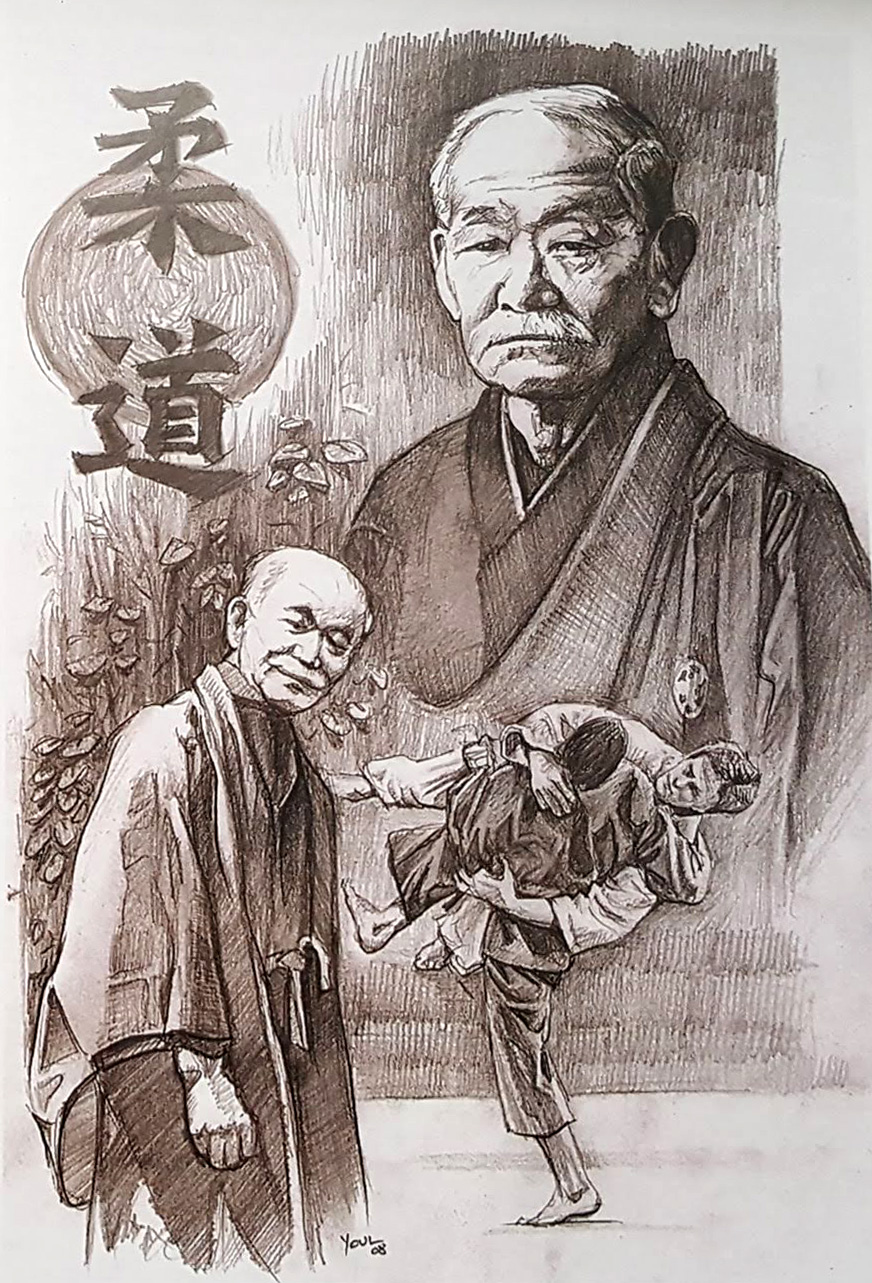 柔
道
YOUL
08